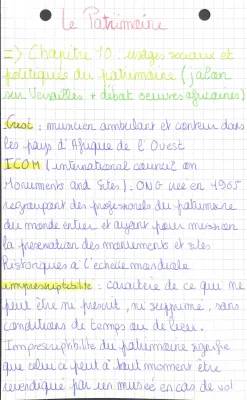 Le Patrimoine
=> Chapitre 10 usages sociaux et
politiques du patrimoine (jalon
sur Versailles + débat oeuvres africaines)
Griot : musicien ambulant et conteur dans
les pays d'Afrique de l'Ouest
ICOM (international council on
Monuments and Sites). ONG née en 1965
regroupant des professionels du patrimoine
du monde entier et ayant pour mission
la préservation des monuments et sites
historiques à l'échelle mondiale
imprescriptibilité : caractère de ce qui ne
peut être ni prescrit, ni supprimé, sans
conditions de temps ou de lieu.
Imprescriptibilité du patrimoine signifie
que celui ci peut à tout moment être
revendiqué par un musée en cas de vol